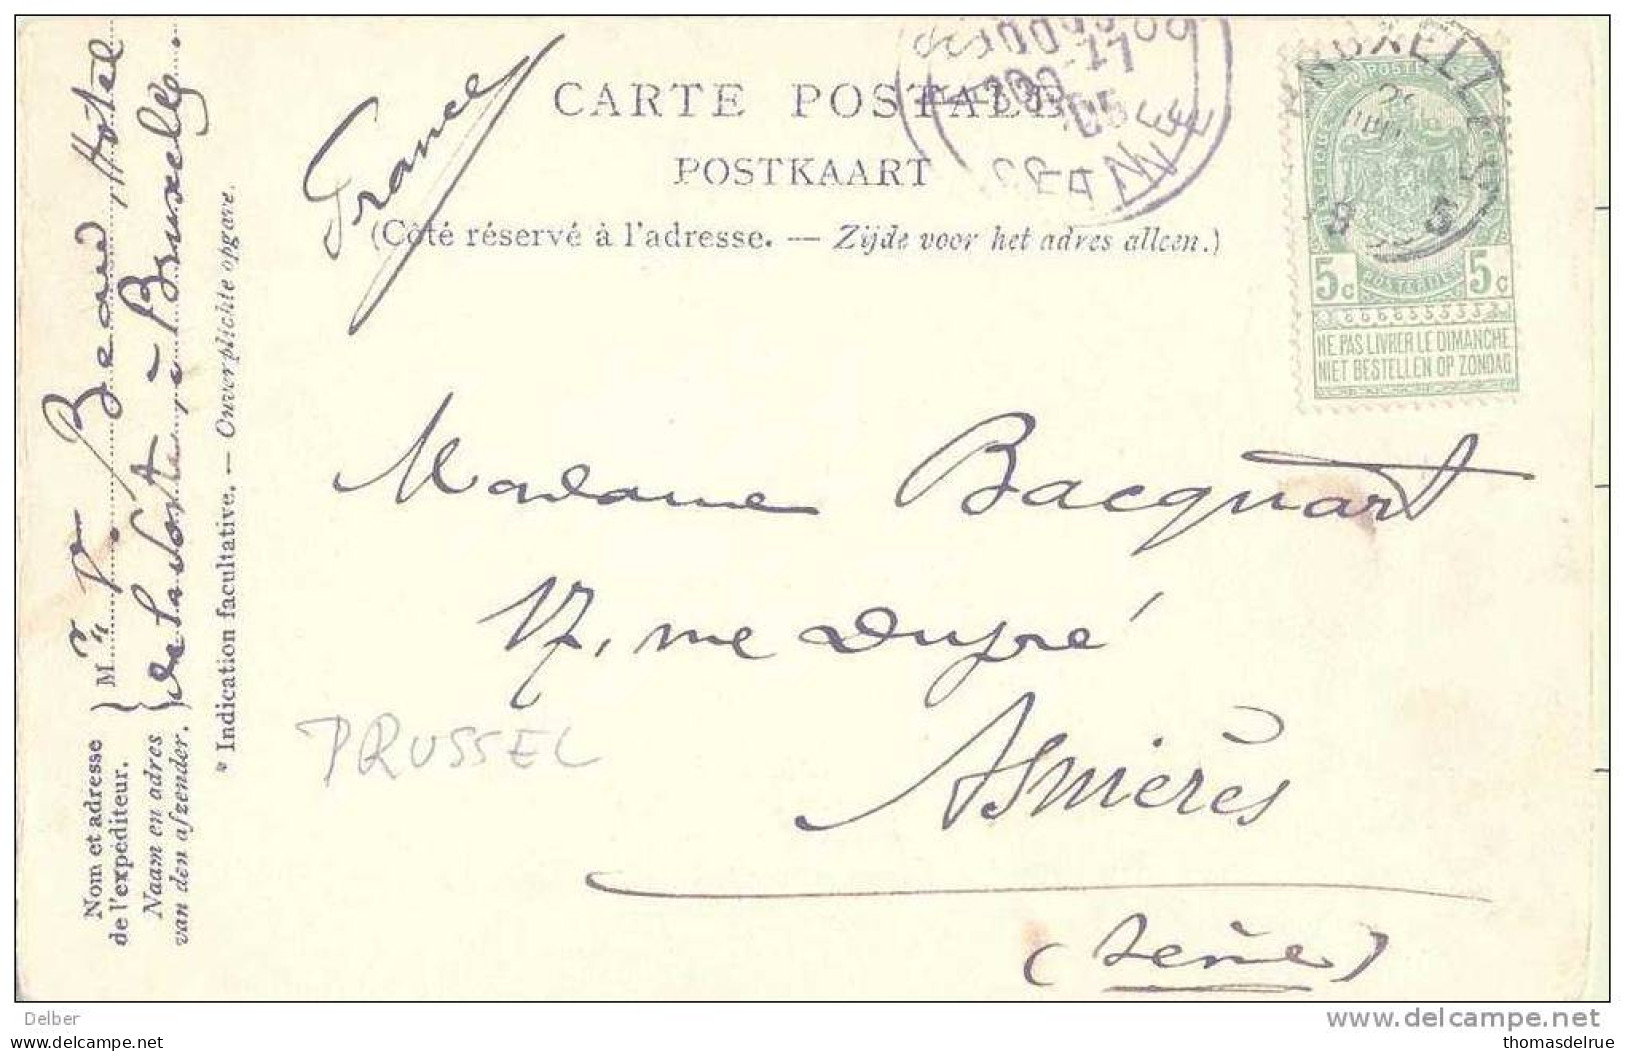 CARTE POSTALE
POSTKAART
(Côté réservé à l'adresse. — Zijde voor het adres alleen.)
France
BRUXELLES
POSTE
5c 5c
NE PAS LIVRER LE DIMANCHE
NIET BESTELLEN OP ZONDAG
Madame Bacquart
17, rue Dupré
Asnières
(Seine)
BRUSSEL
Nom et adresse
de l'expéditeur.
Naam en adres
van den afzender.
M V. Beau Hotel
de la Poste, - Bruxelles.
* Indication facultative. — Onverplichte opgave.
Delber
www.delcampe.net
thomasdelrue